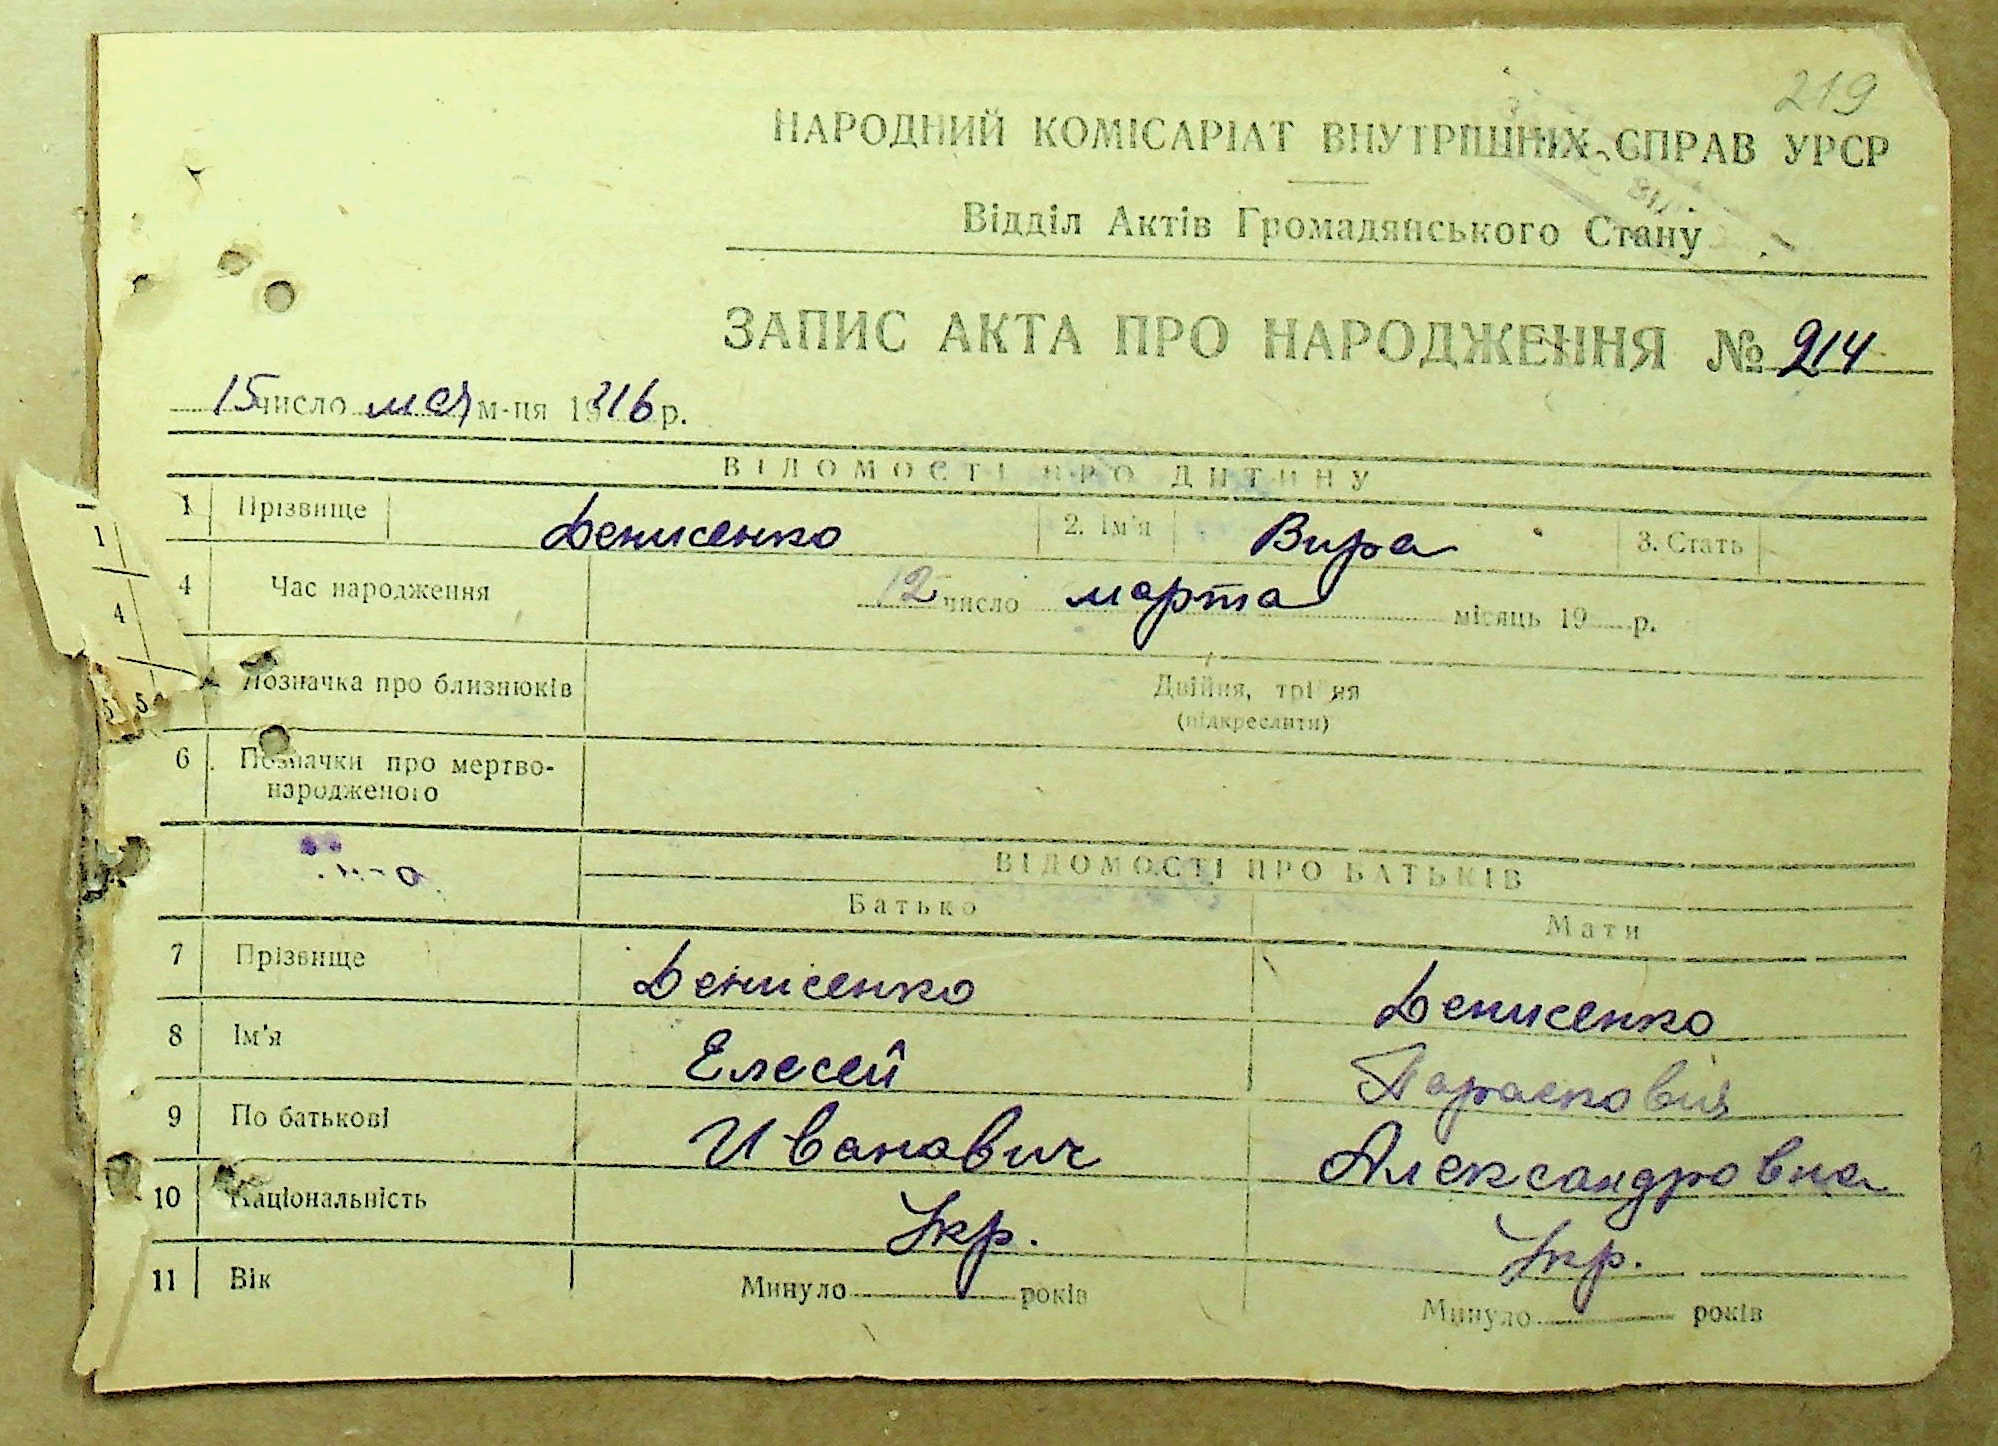 219
НАРОДНИЙ КОМІСАРІАТ ВНУТРІШНІХ СПРАВ УРСР
Відділ Актів Громадянського Стану
ЗАПИС АКТА ПРО НАРОДЖЕННЯ № 214
15 число мая м-ця 19 р.
ВІДОМОСТІ ПРО ДИТИНУ
1 Прізвище Денисенко 2. Ім'я Вира 3. Стать
1
4 Час народження 12 число марта місяць 19 р.
4
Позначка про близнюків Двійня, трійня
(підкреслити)
5 5
6 Позначки про мертво-
народженого
ВІДОМОСТІ ПРО БАТЬКІВ
Батько Мати
7 Прізвище Денисенко Денисенко
8 Ім'я Елесей Парасковия
9 По батькові Иванавич Александровна
10 Національність Укр. Укр.
11 Вік Минуло років Минуло років